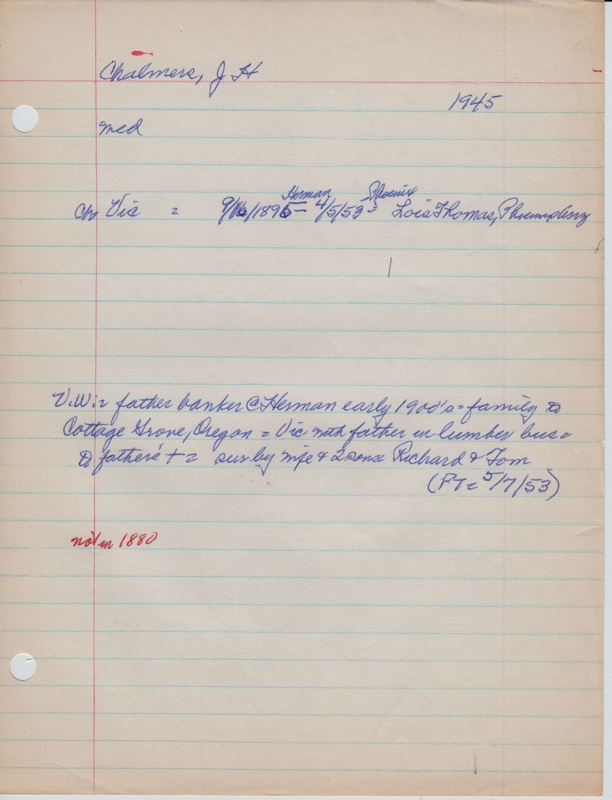 Chalmers, J H
1945
med
Herman Phoenix
ch Vic = 9/16/1895 - 4/5/53 = Lois Thomas,
V.W. = father banker @ Herman early 1900's = family to
Cottage Grove, Oregon = Vic with father in lumber bus =
to father's + = sur by wife & 2 sons Richard & Tom
(PT = 5/7/53)
not in 1880